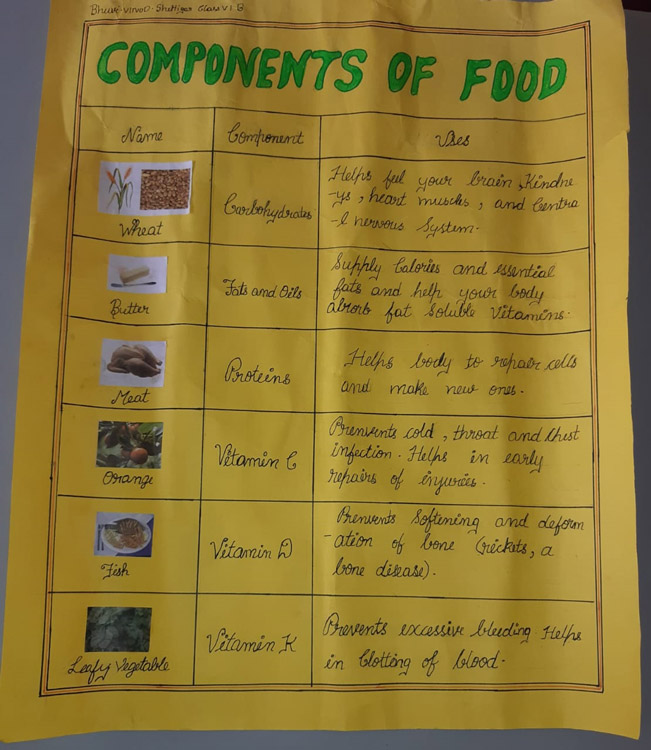 Shettigar Class VI B
COMPONENTS OF FOOD
Name
Component
Uses
Wheat
Carbohydrates
Helps feel your brain, Kindne
-ys, heart muscles, and Centra
-l nervous System.
Butter
Fats and Oils
Supply Calories and essential
fats and help your body
absorb fat Soluble Vitamins.
Meat
Proteins
Helps body to repair cells
and make new ones.
Orange
Vitamin C
Prenvents cold, throat and Chest
infection. Helps in early
repairs of injuries.
Fish
Vitamin D
Prenvents Softening and deform
-ation of bone (rickets, a
bone disease).
Leafy Vegetable
Vitamin K
Prevents excessive bleeding Helps
in Clotting of blood.